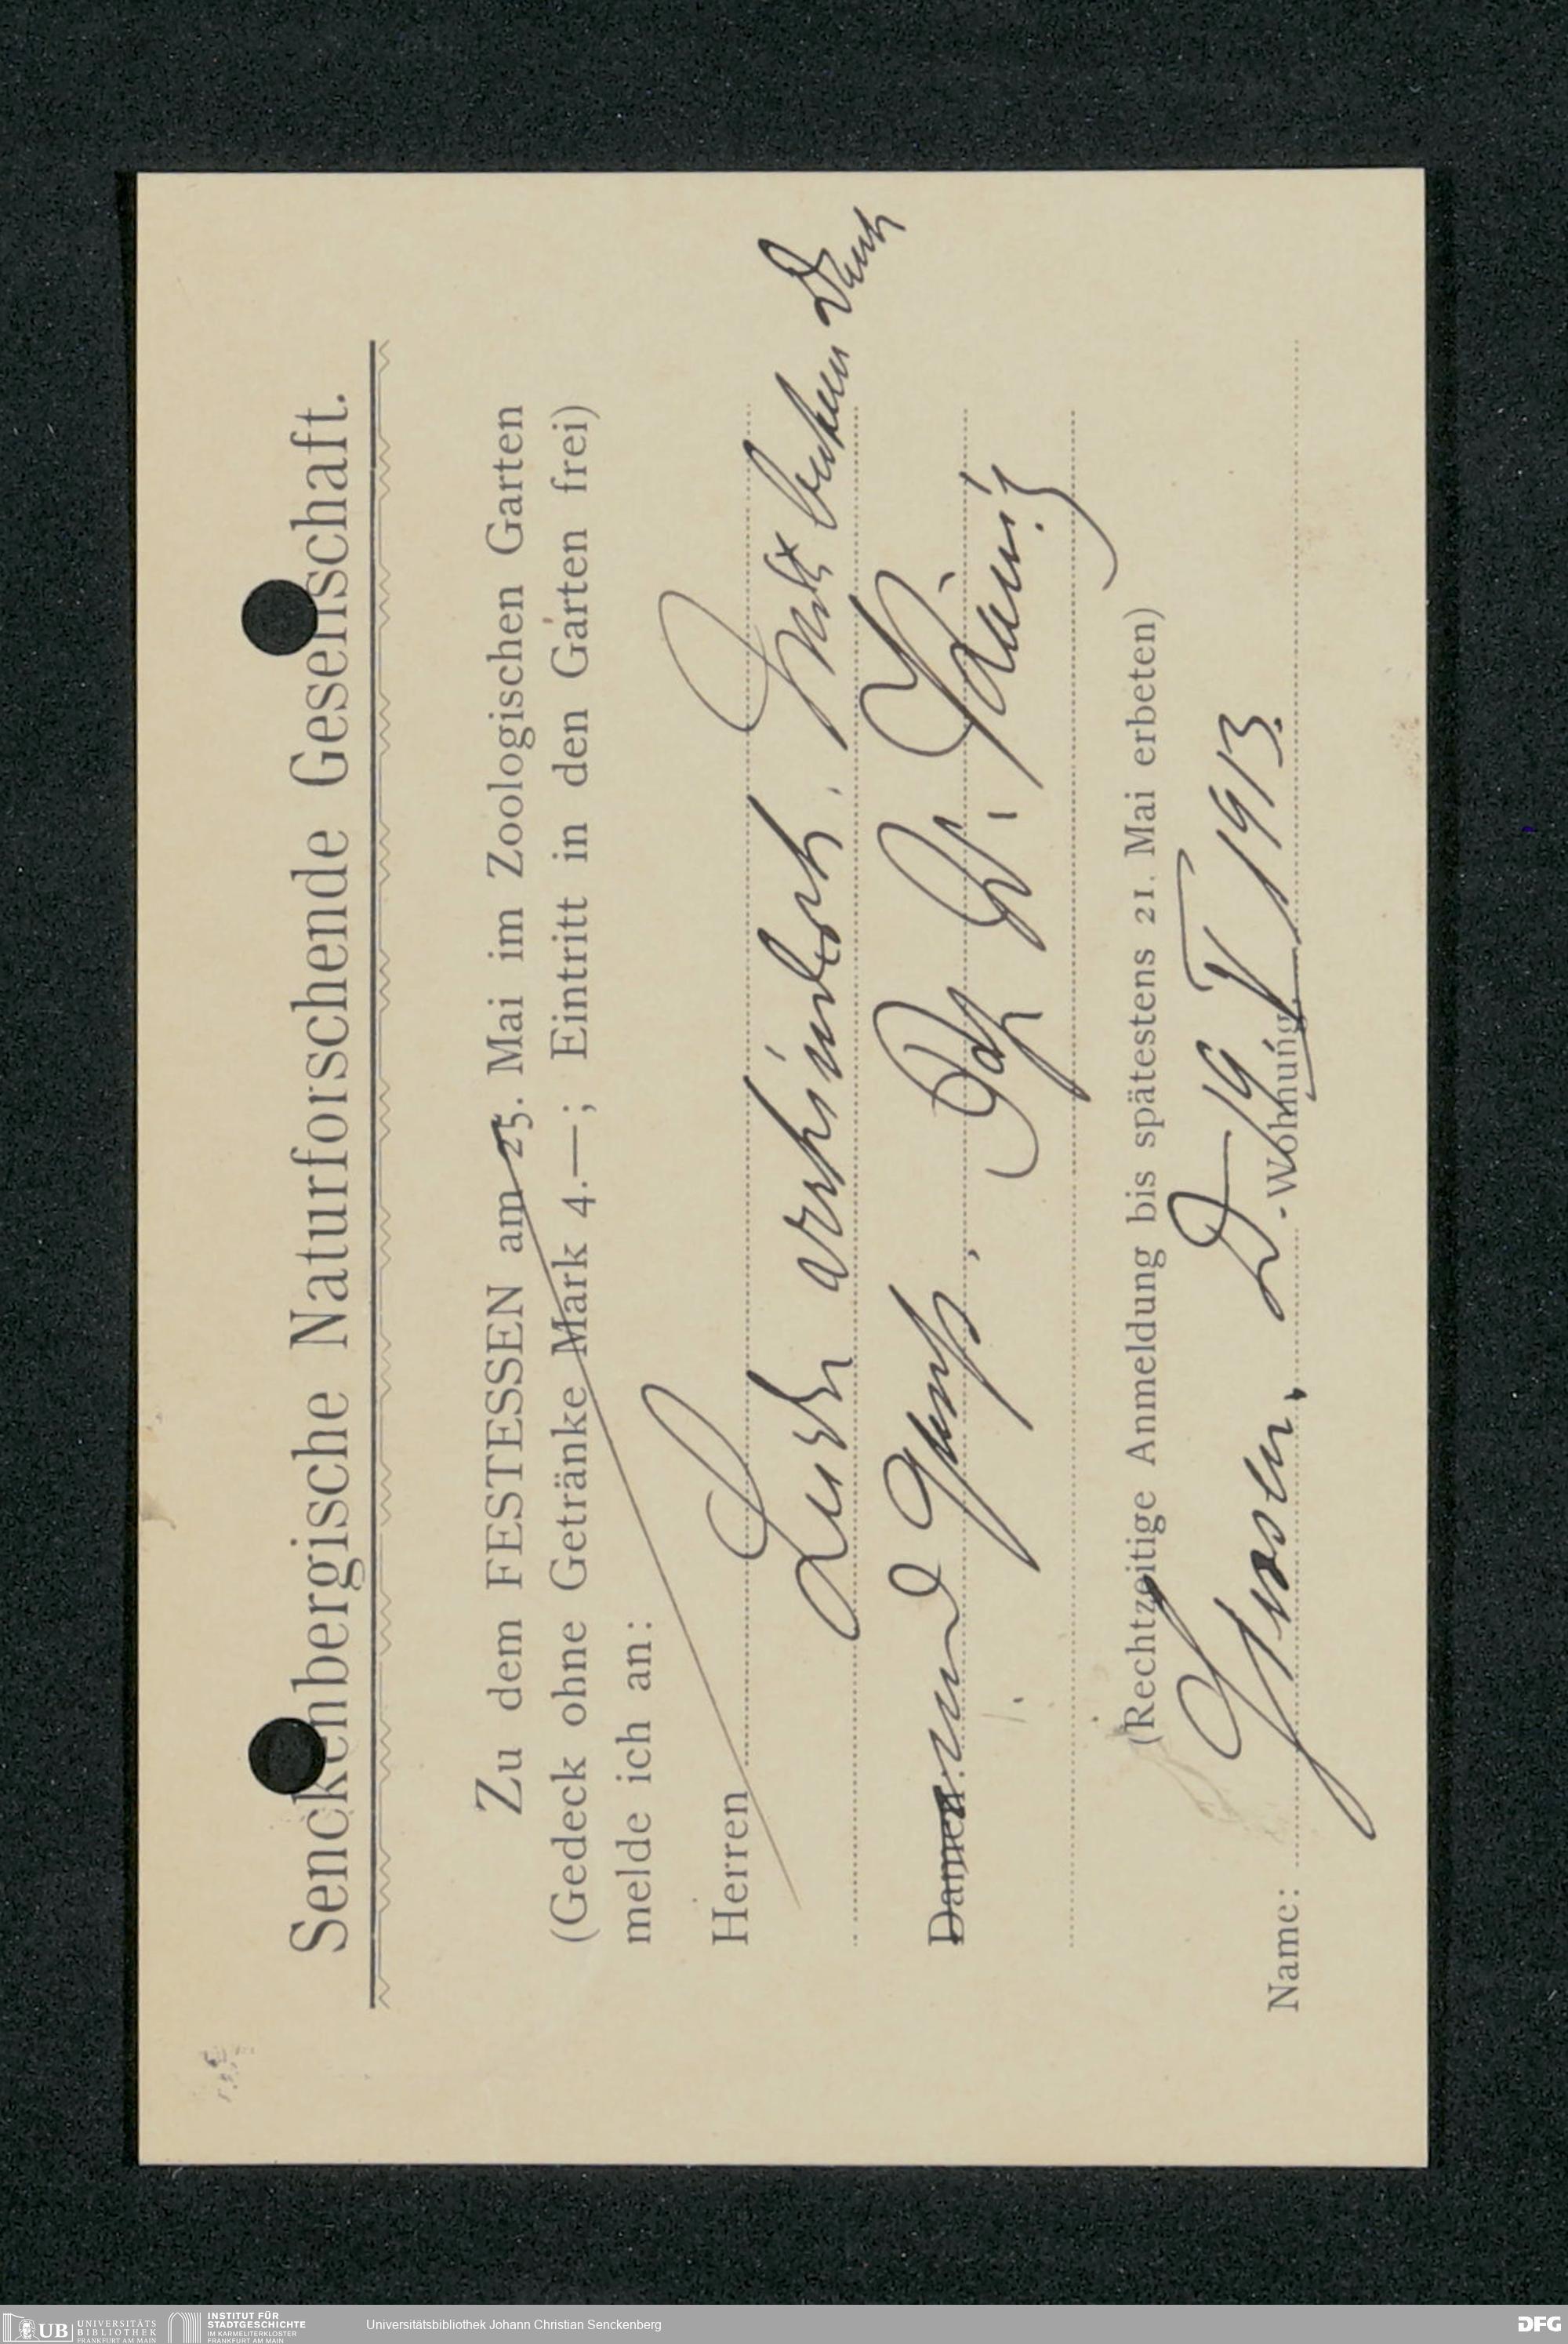 Senckenbergische Naturforschende Gesellschaft.
Zu dem FESTESSEN am 25. Mai im Zoologischen Garten
(Gedeck ohne Getränke Mark 4.—; Eintritt in den Garten frei)
melde ich an:
Herren
Leider verhindert. Mit bestem Dank
Damen und Gruß,
(Rechtzeitige Anmeldung bis spätestens 21. Mai erbeten)
Name: D. 19 V 1913.
Wohnung
UB UNIVERSITÄTS BIBLIOTHEK FRANKFURT AM MAIN
INSTITUT FÜR STADTGESCHICHTE IM KARMELITERKLOSTER FRANKFURT AM MAIN
Universitätsbibliothek Johann Christian Senckenberg
DFG